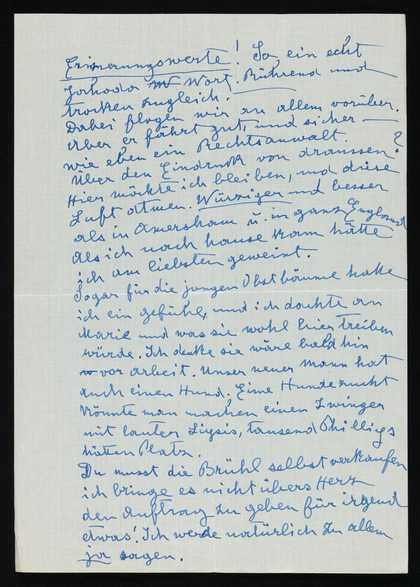 Erinnerungswerte! So ein echt
Wort. Rührend und
trocken zugleich.
Dabei flogen wir an allem vorüber.
Aber er fährt gut, und sicher —
wie eben ein Rechtsanwalt.
Über den Eindruck von draussen?
Hier möchte ich bleiben, und diese
Luft atmen. Würziger und besser
als in Amersham u. in ganz England
Als ich nach hause kam hätte
ich am liebsten geweint.
Sogar für die jungen Obstbäume hatte
ich ein gefühl, und ich dachte an
Marie und was sie wohl hier treiben
würde. Ich denke sie wäre bald hin
vor arbeit. Unser neuer Mann hat
auch einen Hund. Eine Hundezucht
könnte man machen einen Zwinger
mit lauter tausend
hätten Platz.
Du musst die Brühl selbst verkaufen
ich bringe es nicht übers Herz
den Auftrag zu geben für irgend
etwas! Ich werde natürlich zu allem
ja sagen.